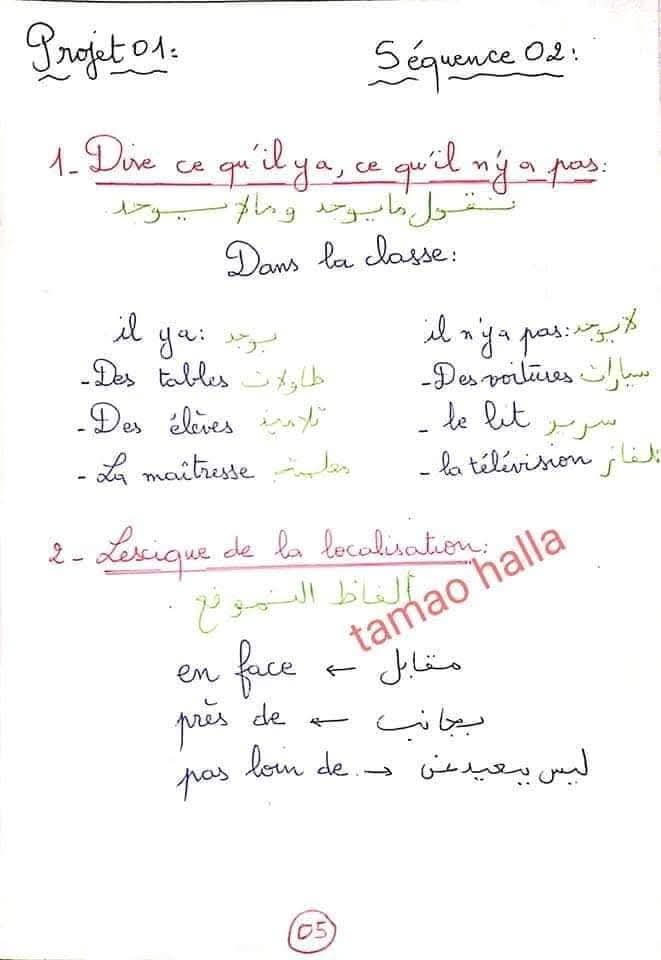 Projet 01: Séquence 02:
1- Dire ce qu'il y a, ce qu'il n'y a pas:
نقول ما يوجد وما لا يوجد
Dans la classe:
il y a: يوجد il n'y a pas: لا يوجد
- Des tables طاولات - Des voitures سيارات
- Des élèves تلاميذ - le lit سرير
- La maîtresse معلمة - la télévision تلفاز
2- Lescique de la localisation:
ألفاظ التموقع .
tamao halla
en face ← مقابل
près de ← بجانب
pas loin de → ليس ببعيد عن
05